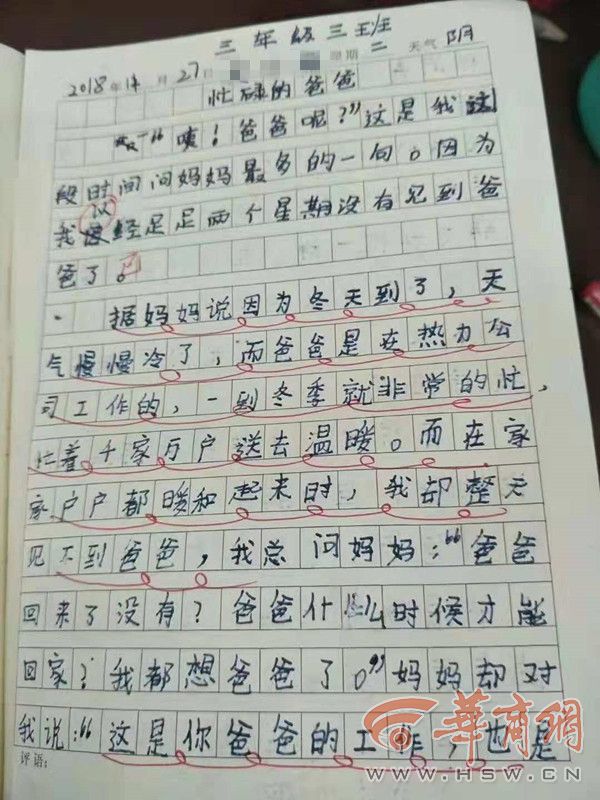 三年级三班
2018年11月27日 星期二 天气阴
忙碌的爸爸
“咦！爸爸呢？”这是我这
段时间问妈妈最多的一句。因为
我已经足足两个星期没有见到爸
爸了。
据妈妈说因为冬天到了，天
气慢慢冷了，而爸爸是在热力公
司工作的，一到冬季就非常的忙，
忙着千家万户送去温暖。而在家
家户户都暖和起来时，我却整天
见不到爸爸，我总问妈妈：“爸爸
回来了没有？爸爸什么时候才能
回家？我都想爸爸了。”妈妈却对
我说：“这是你爸爸的工作，也是
评语：
華商網
WWW.HSW.CN